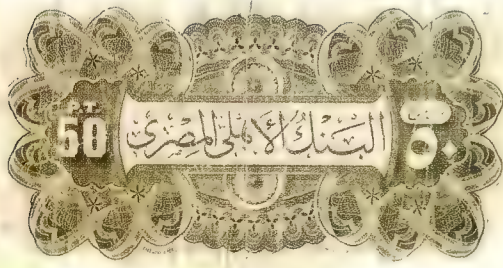 P.T.
50
البنك الأهلى المصرى
٥٠